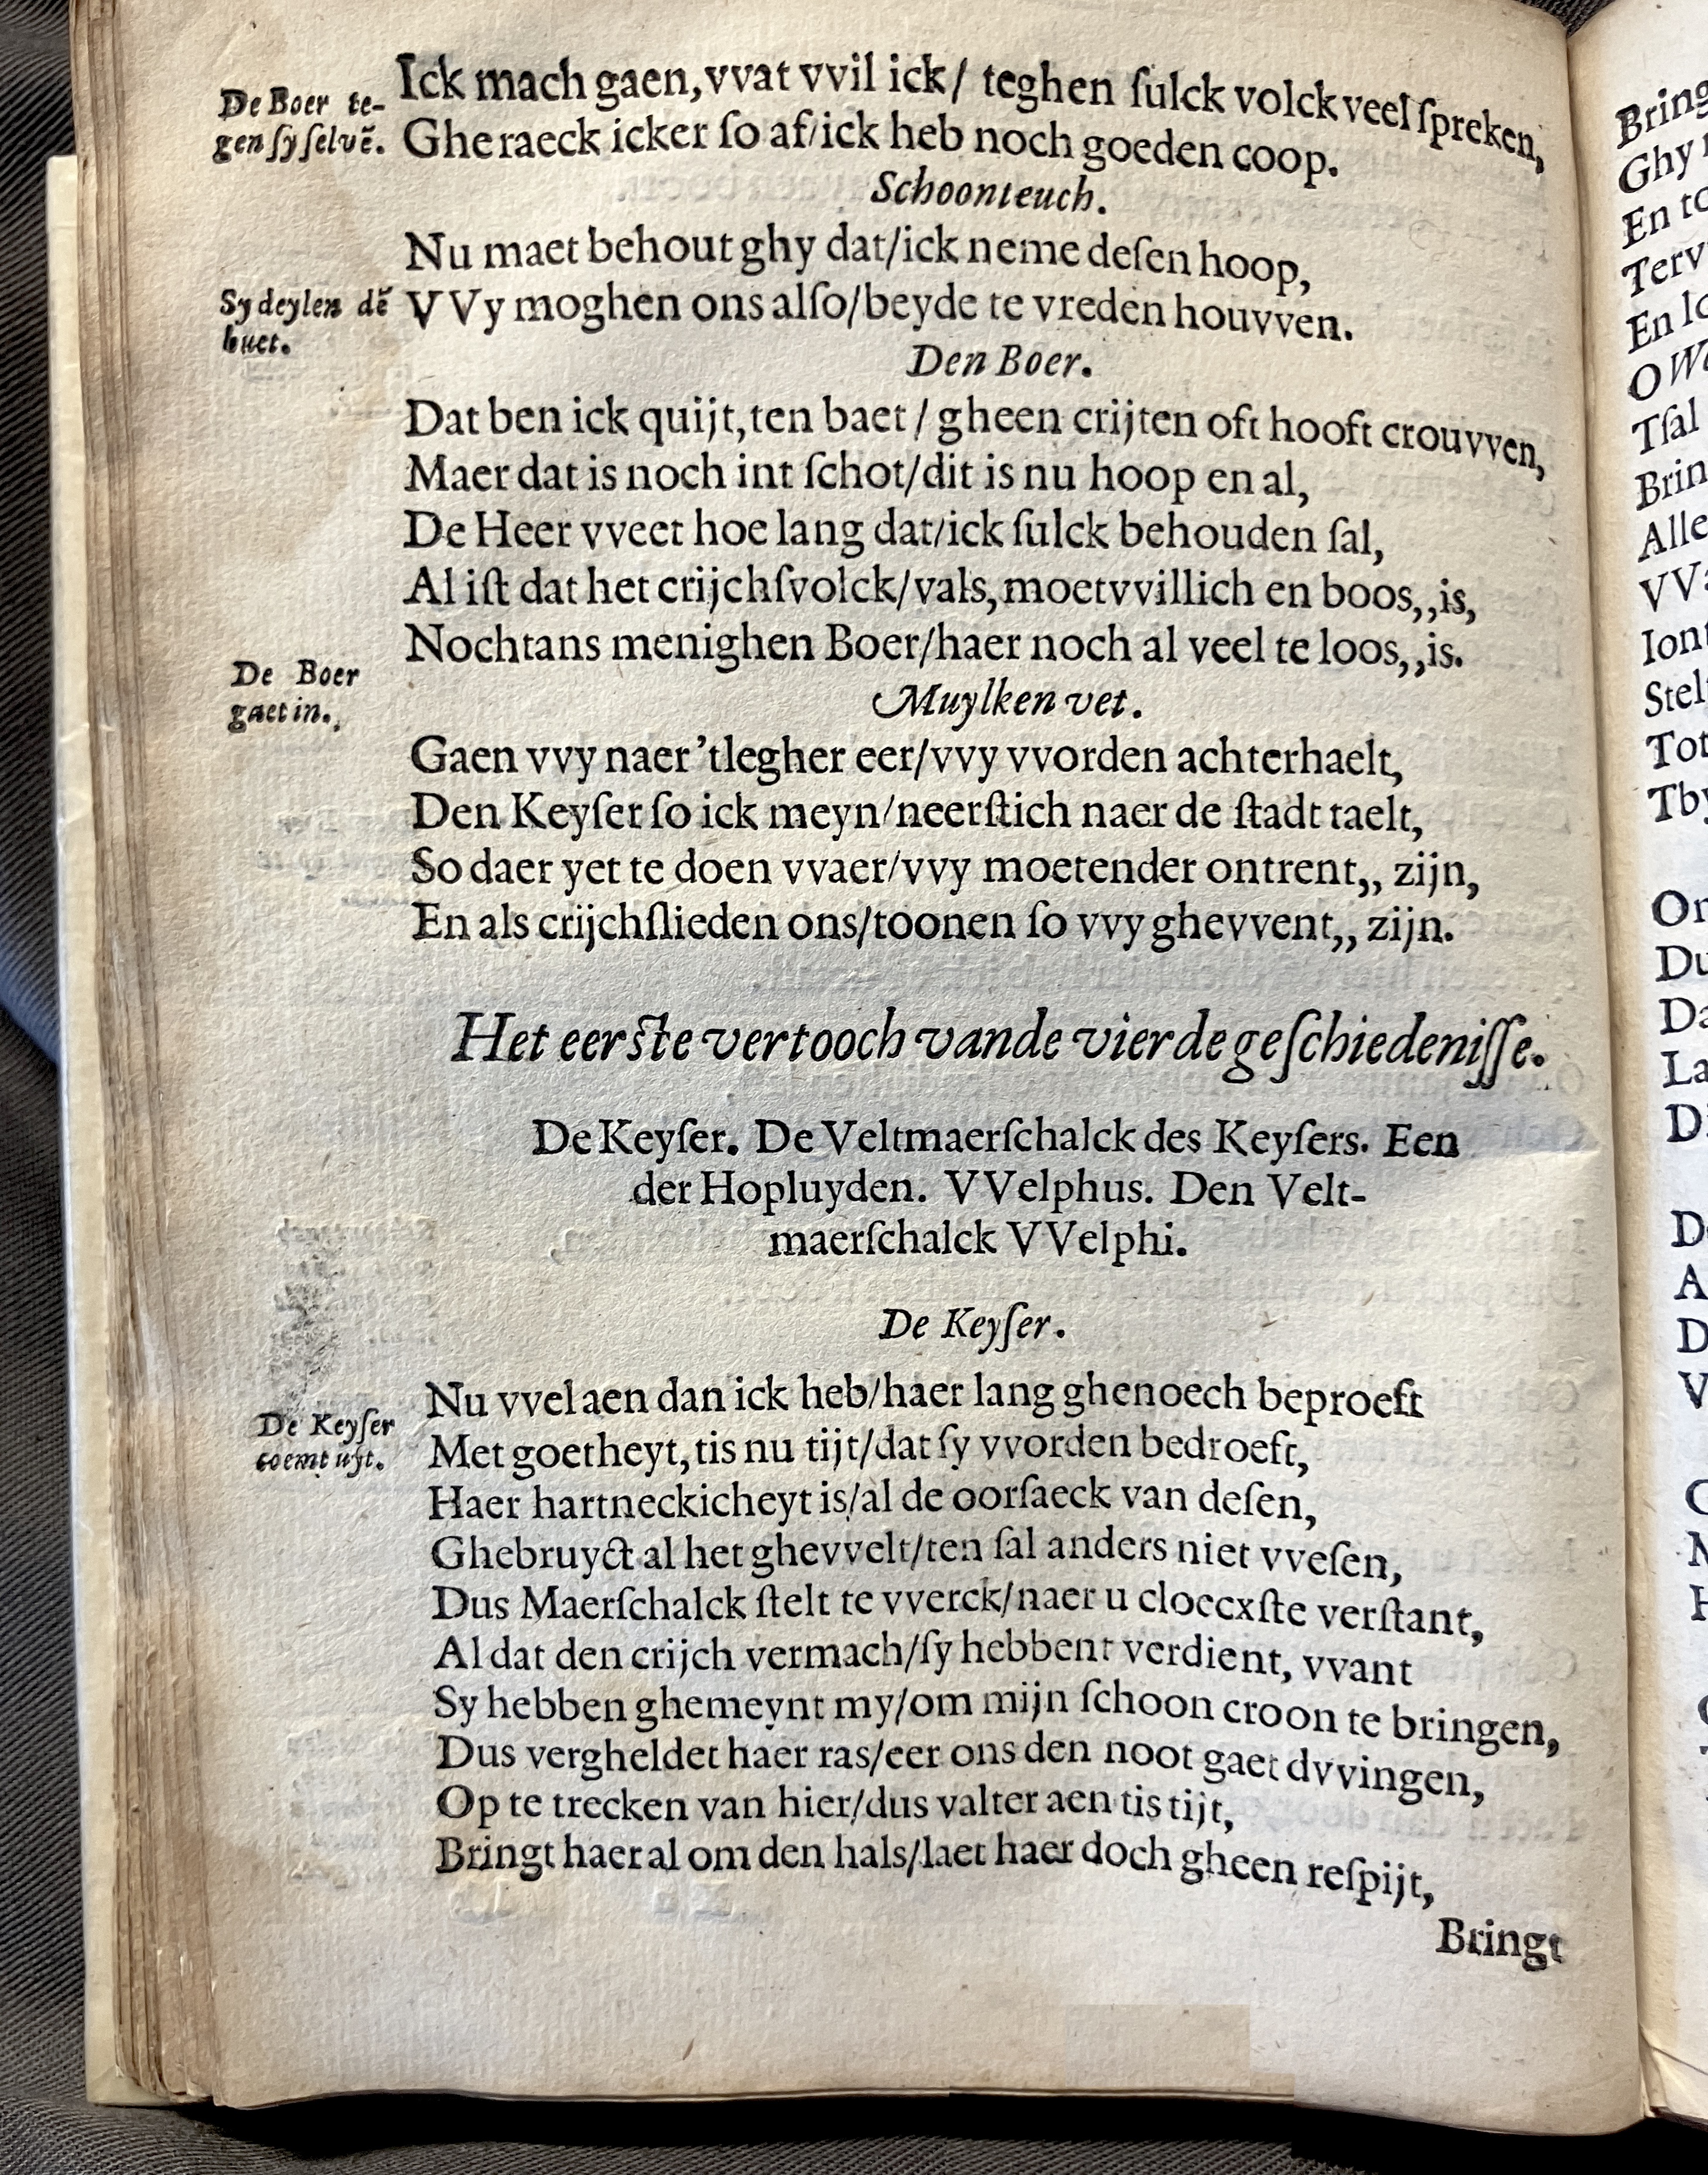 De Boer te-
gen sy selvē.
Ick mach gaen, vvat vvil ick/ teghen ſulck volck veel ſpreken,
Gheraeck icker ſo af/ick heb noch goeden coop.
Schoonteuch.
Nu maet behout ghy dat/ick neme deſen hoop,
Sy deylen dē
buet.
VVy moghen ons alſo/beyde te vreden houvven.
Den Boer.
Dat ben ick quijt, ten baet / gheen crijten oft hooft crouvven,
Maer dat is noch int ſchot/dit is nu hoop en al,
De Heer vveet hoe lang dat/ick ſulck behouden ſal,
Al iſt dat het crijchſvolck/vals, moetvvillich en boos,,is,
Nochtans menighen Boer/haer noch al veel te loos,,is.
De Boer
gaet in.
Muylken vet.
Gaen vvy naer 'tlegher eer/vvy vvorden achterhaelt,
Den Keyſer ſo ick meyn/neerſtich naer de ſtadt taelt,
So daer yet te doen vvaer/vvy moetender ontrent,, zijn,
En als crijchſlieden ons/toonen ſo vvy ghevvent,, zijn.
Het eerſte vertooch vande vierde geſchiedeniſſe.
De Keyſer. De Veltmaerſchalck des Keyſers. Een
der Hopluyden. VVelphus. Den Velt-
maerſchalck VVelphi.
De Keyſer.
Nu vvel aen dan ick heb/haer lang ghenoech beproeft
De Keyſer
coemt uyt.
Met goetheyt, tis nu tijt/dat ſy vvorden bedroeft,
Haer hartneckicheyt is/al de oorſaeck van deſen,
Ghebruyct al het ghevvelt/ten ſal anders niet vveſen,
Dus Maerſchalck ſtelt te vverck/naer u cloecxſte verſtant,
Al dat den crijch vermach/ſy hebbent verdient, vvant
Sy hebben ghemeynt my/om mijn ſchoon croon te bringen,
Dus vergheldet haer ras/eer ons den noot gaet dvvingen,
Op te trecken van hier/dus valter aen tis tijt,
Bringt haer al om den hals/laet haer doch gheen reſpijt,
Bringt